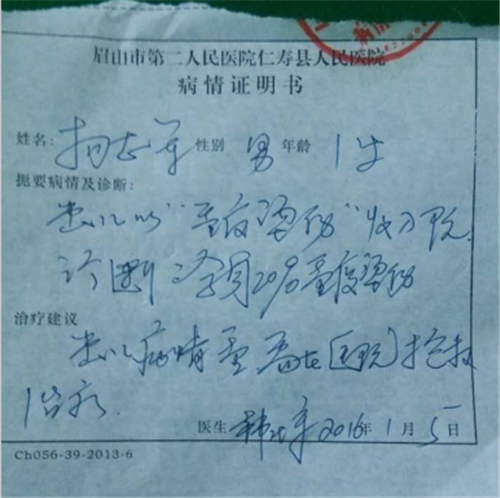 眉山市第二人民医院仁寿县人民医院
病情证明书
姓名: 性别 男 年龄 1岁
扼要病情及诊断:
患儿以"重度烫伤"收入院.
诊断 20% 重度烫伤
治疗建议
患儿病情重 需在医院抢救
治疗.
医生 2016年1月5日
Ch056-39-2013-6